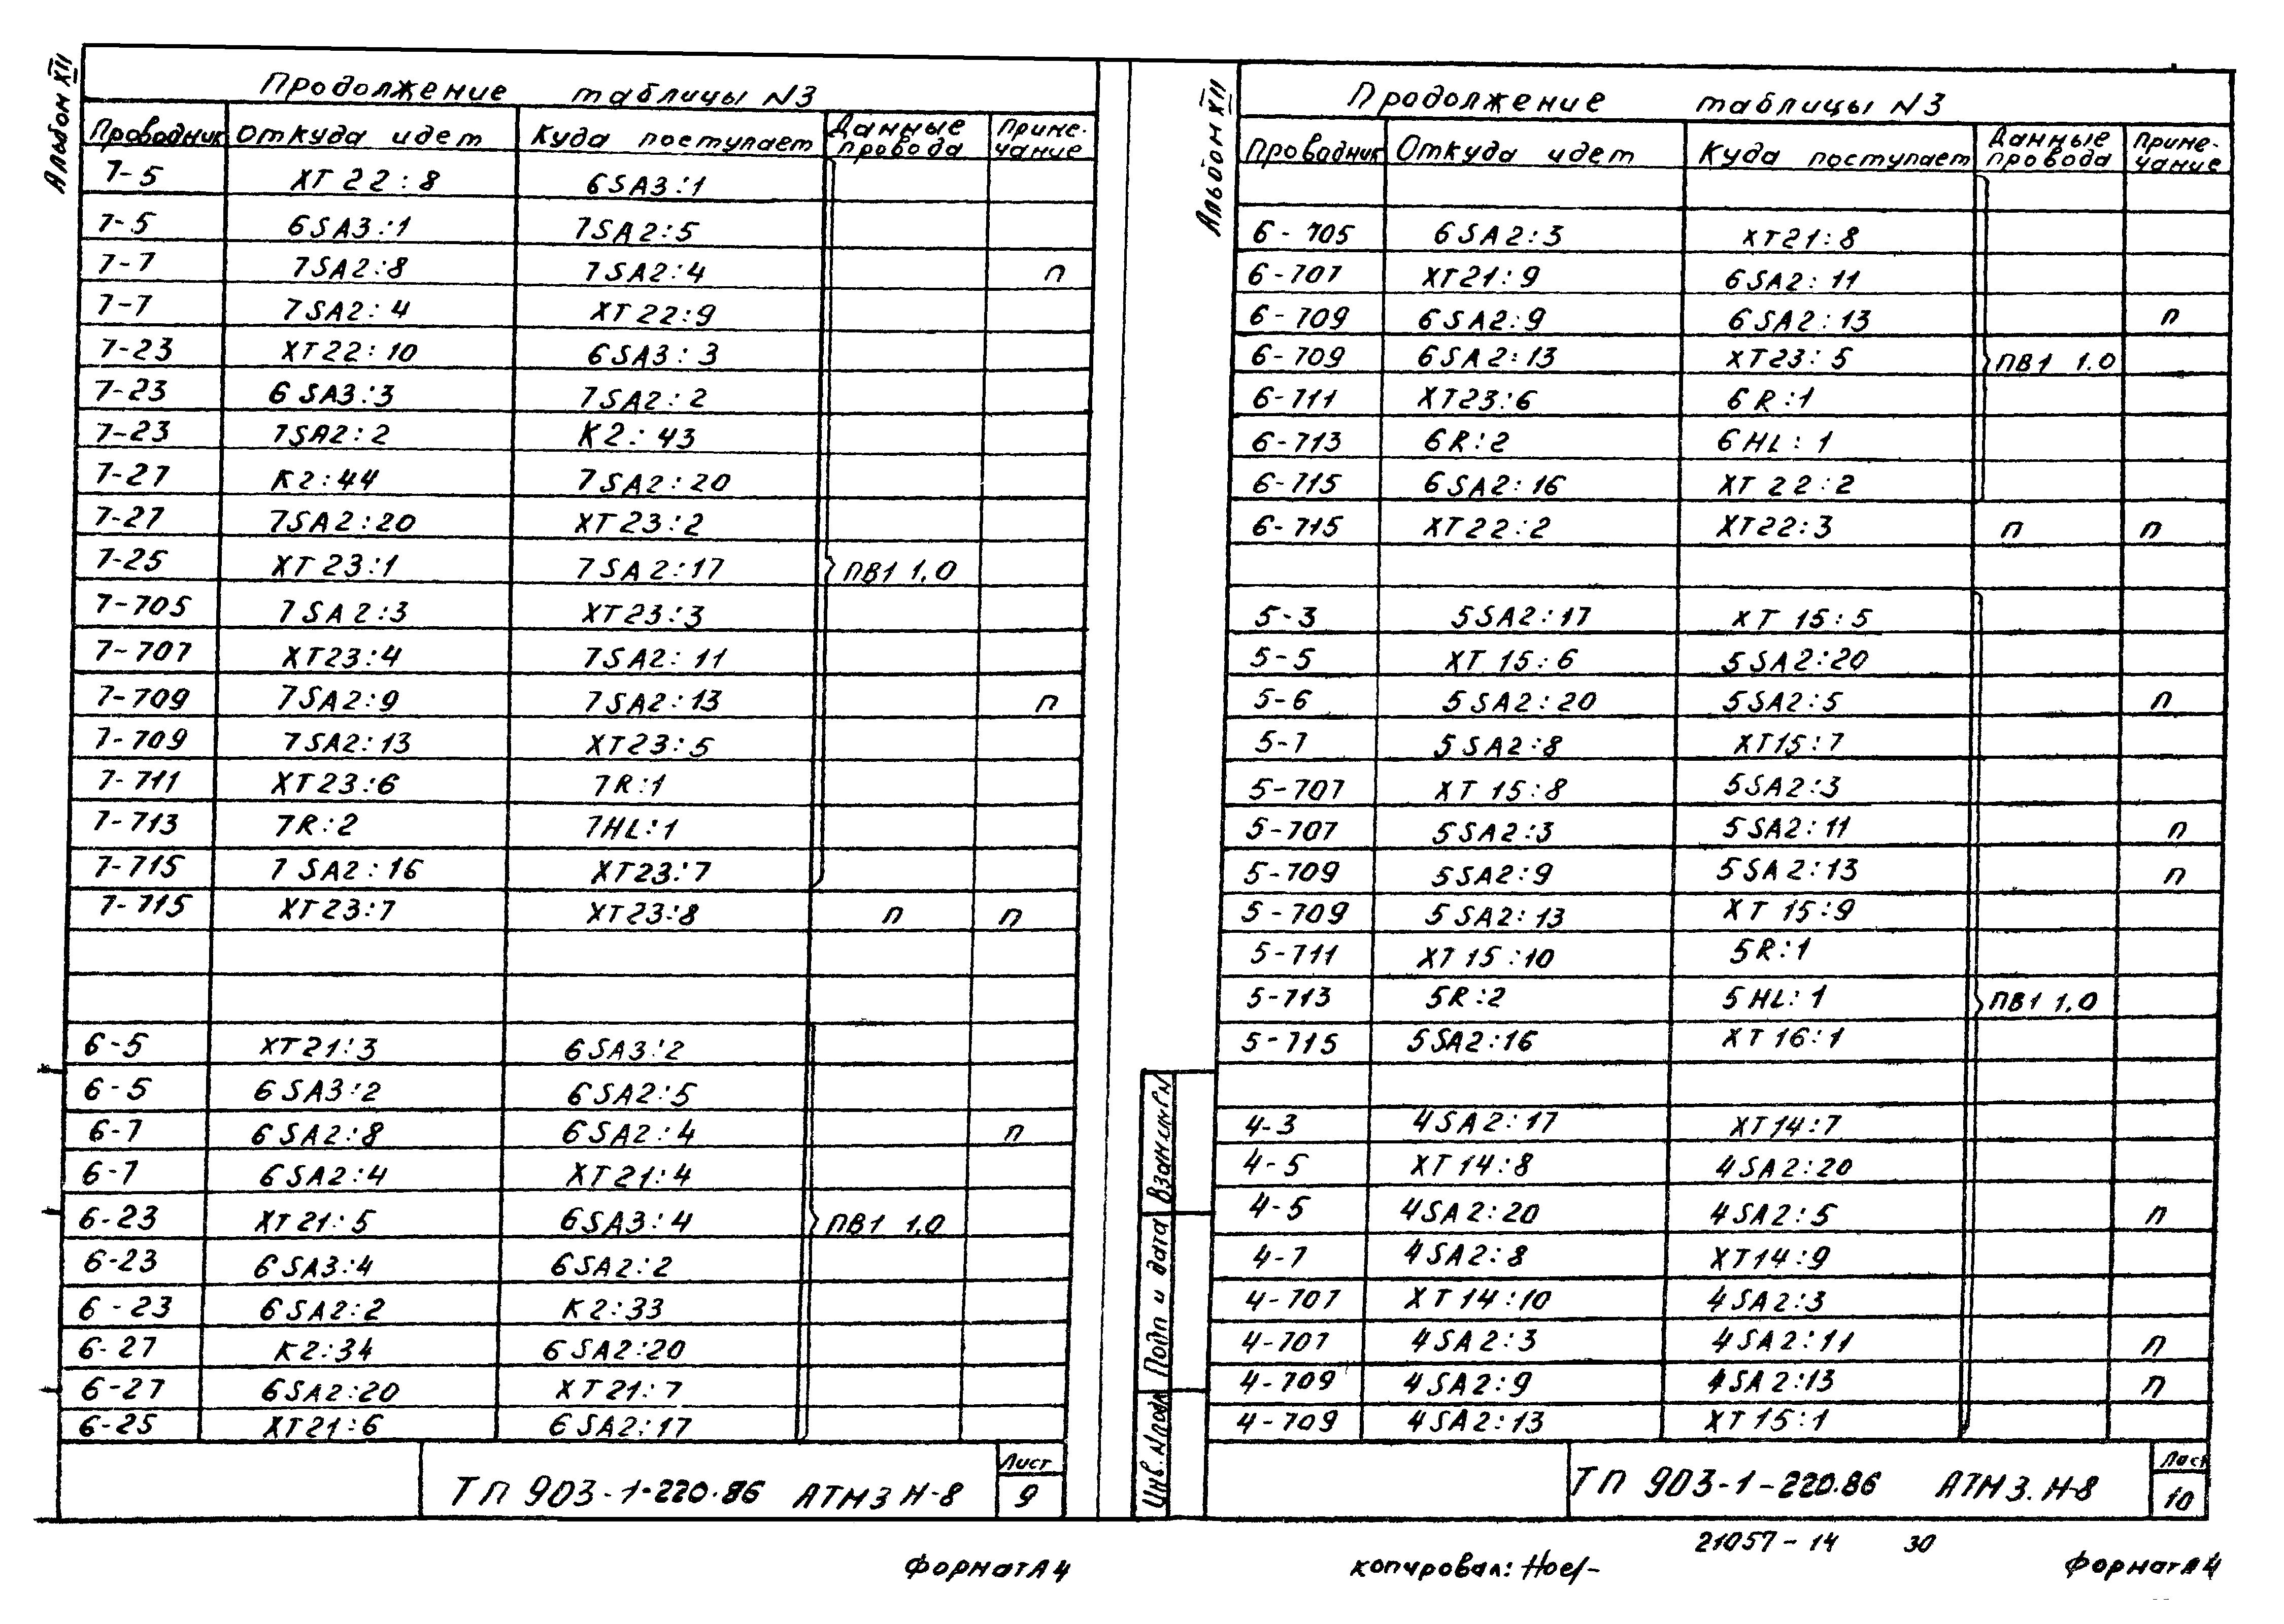 Альбом XII
Продолжение таблицы N3
Проводник Откуда идет Куда поступает Данные провода Приме-чание
7-5 XT22:8 6SA3:1
7-5 6SA3:1 7SA2:5
7-7 7SA2:8 7SA2:4 п
7-7 7SA2:4 XT22:9
7-23 XT22:10 6SA3:3
7-23 6SA3:3 7SA2:2
7-23 7SA2:2 K2:43
7-27 K2:44 7SA2:20
7-27 7SA2:20 XT23:2
7-25 XT23:1 7SA2:17 ПВ1 1,0
7-705 7SA2:3 XT23:3
7-707 XT23:4 7SA2:11
7-709 7SA2:9 7SA2:13 п
7-709 7SA2:13 XT23:5
7-711 XT23:6 7R:1
7-713 7R:2 7HL:1
7-715 7SA2:16 XT23:7
7-715 XT23:7 XT23:8 п п
6-5 XT21:3 6SA3:2
6-5 6SA3:2 6SA2:5
6-7 6SA2:8 6SA2:4 п
6-7 6SA2:4 XT21:4
6-23 XT21:5 6SA3:4 ПВ1 1,0
6-23 6SA3:4 6SA2:2
6-23 6SA2:2 K2:33
6-27 K2:34 6SA2:20
6-27 6SA2:20 XT21:7
6-25 XT21:6 6SA2:17
ТП 903-1-220.86 АТМ3 Н-8
Лист
9
Формат А4
Альбом XII
Продолжение таблицы N3
Проводник Откуда идет Куда поступает Данные провода Приме-чание
6-705 6SA2:3 XT21:8
6-707 XT21:9 6SA2:11
6-709 6SA2:9 6SA2:13 п
6-709 6SA2:13 XT23:5 ПВ1 1.0
6-711 XT23:6 6R:1
6-713 6R:2 6HL:1
6-715 6SA2:16 XT22:2
6-715 XT22:2 XT22:3 п п
5-3 5SA2:17 XT15:5
5-5 XT15:6 5SA2:20
5-6 5SA2:20 5SA2:5 п
5-7 5SA2:8 XT15:7
5-707 XT15:8 5SA2:3
5-707 5SA2:3 5SA2:11 п
5-709 5SA2:9 5SA2:13 п
5-709 5SA2:13 XT15:9
5-711 XT15:10 5R:1
5-713 5R:2 5HL:1 ПВ1 1,0
5-715 5SA2:16 XT16:1
4-3 4SA2:17 XT14:7
4-5 XT14:8 4SA2:20
4-5 4SA2:20 4SA2:5 п
4-7 4SA2:8 XT14:9
4-707 XT14:10 4SA2:3
4-707 4SA2:3 4SA2:11 п
4-709 4SA2:9 4SA2:13 п
4-709 4SA2:13 XT15:1
Взам.инв.N
Подп и дата
Инв.Nподл
ТП 903-1-220.86 АТМ3.Н-8
Лист
10
21057-14 30
копировал:
Формат А4